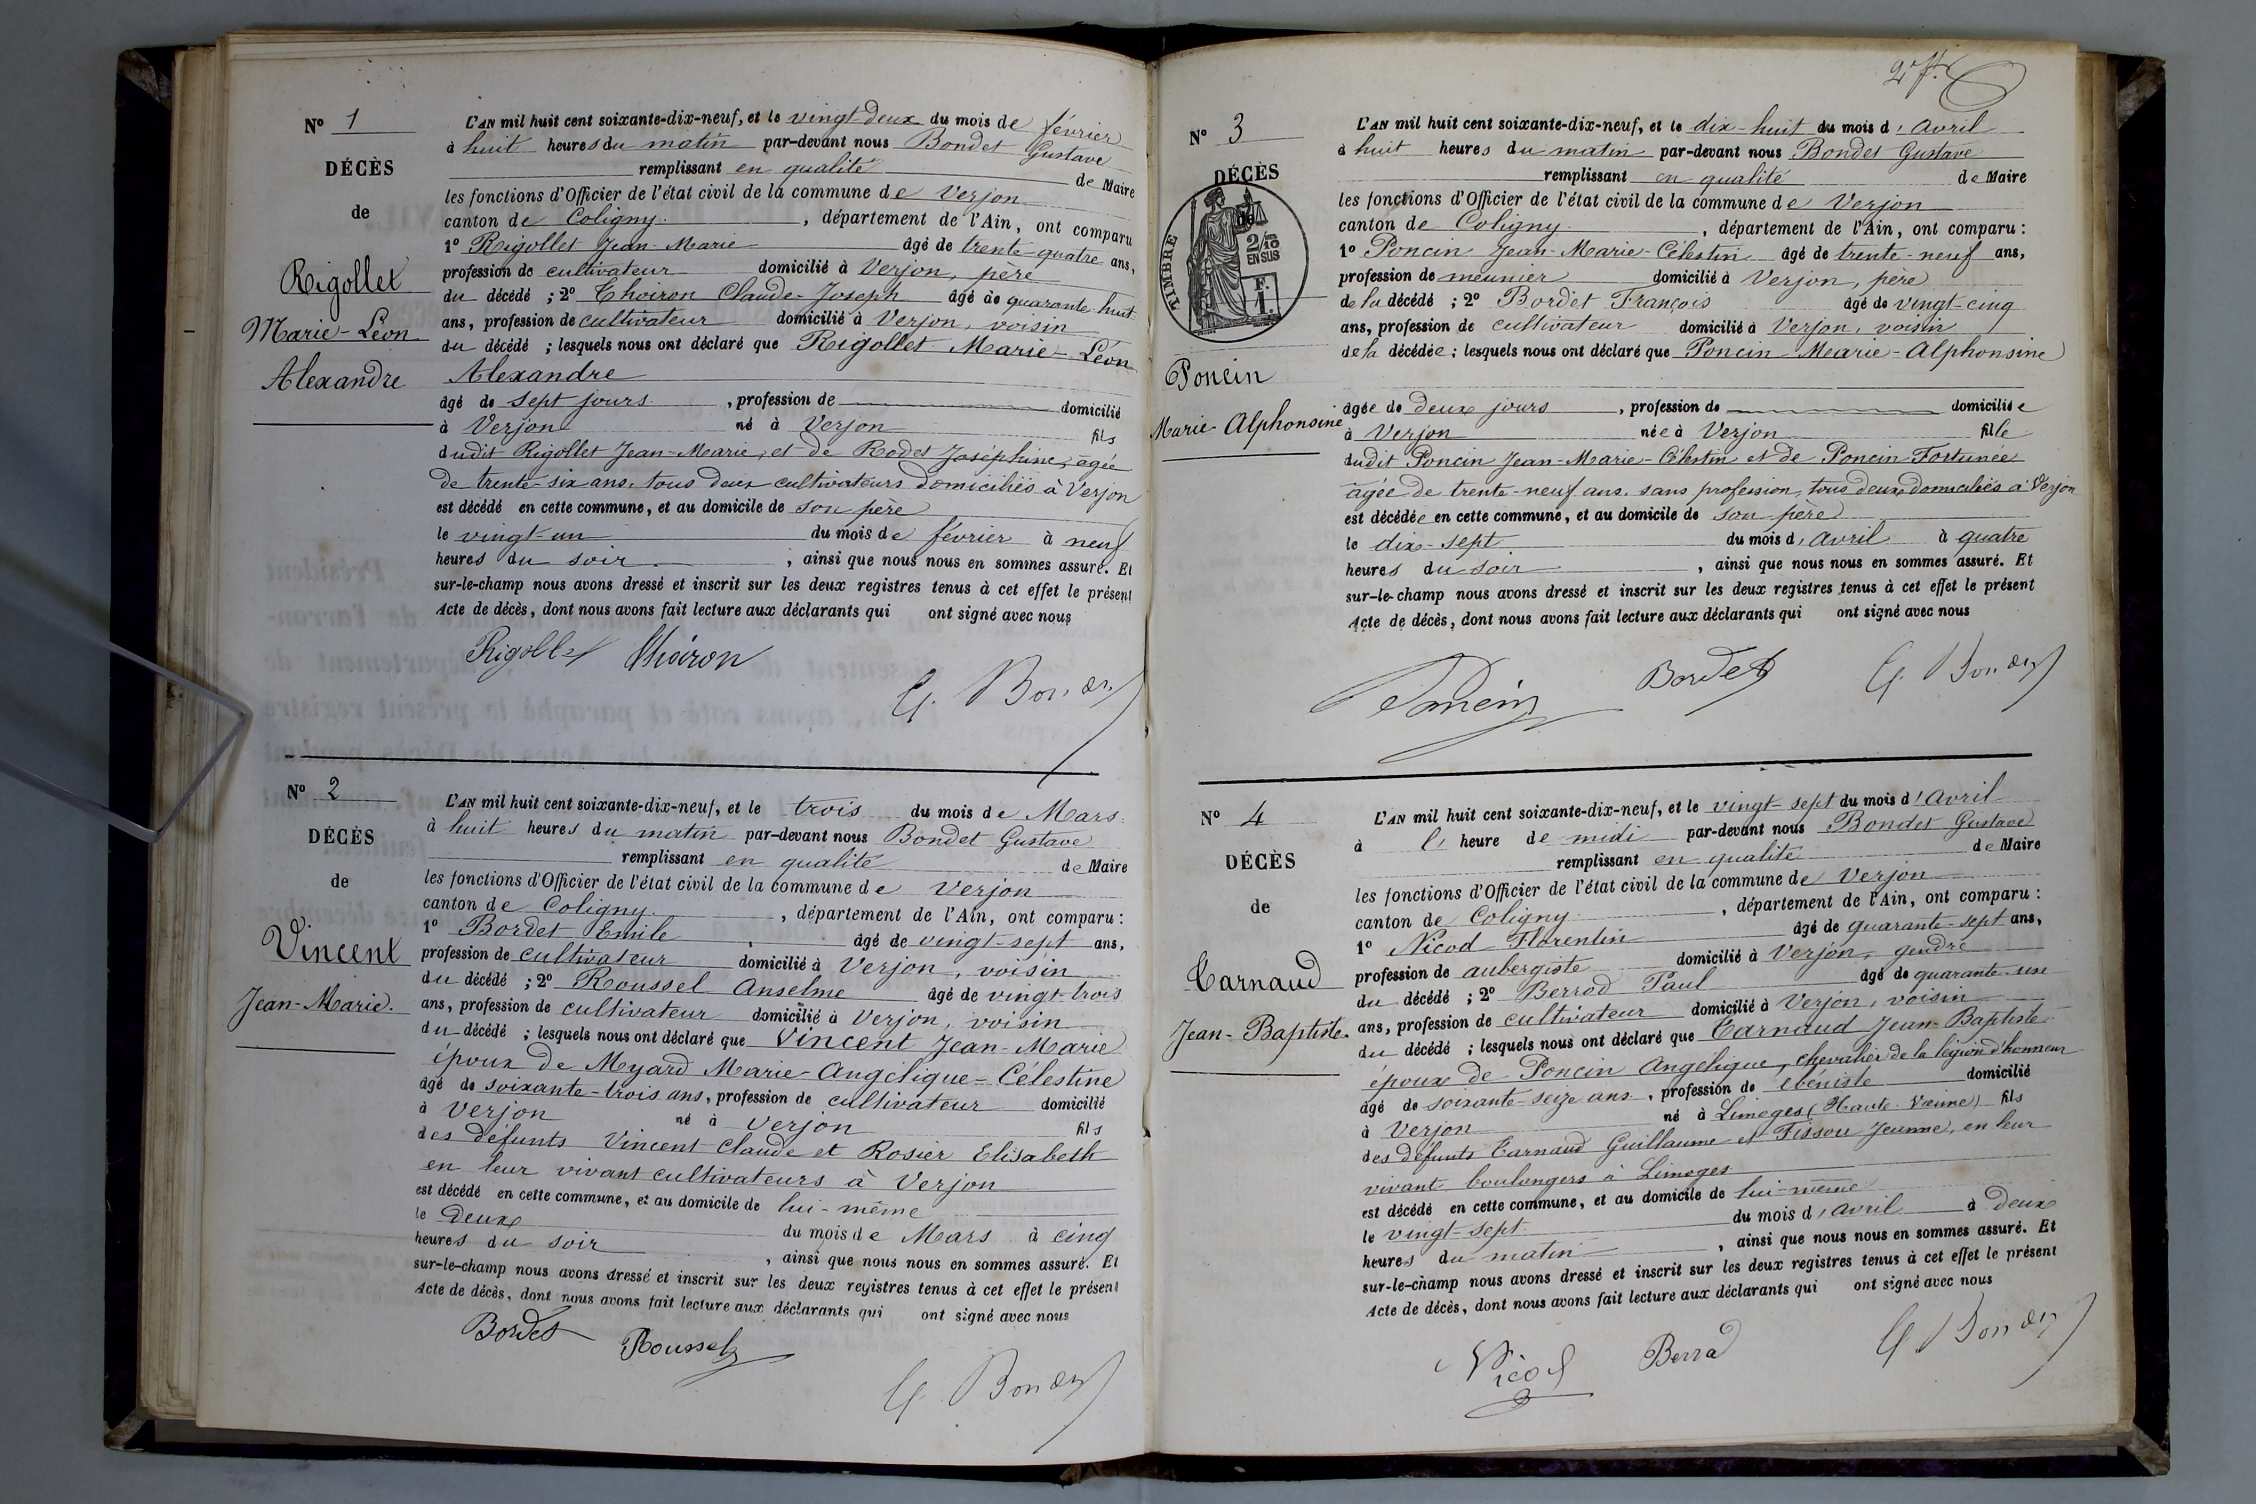 Nº 1
DÉCÈS
de
Rigollet
Marie-Léon
Alexandre
L'AN mil huit cent soixante-dix-neuf, et le vingt-deux du mois de février
à huit heures du matin par-devant nous Bondet Gustave
remplissant en qualité de Maire
les fonctions d'Officier de l'état civil de la commune de Verjon
canton de Coligny, département de l'Ain, ont comparu
1º Rigollet Jean-Marie âgé de trente-quatre ans,
profession de cultivateur domicilié à Verjon, père
du décédé ; 2º Thoiron Claude-Joseph âgé de quarante-huit
ans, profession de cultivateur domicilié à Verjon, voisin
du décédé ; lesquels nous ont déclaré que Rigollet Marie-Léon
Alexandre
âgé de sept jours, profession de domicilié
à Verjon né à Verjon fils
dudit Rigollet Jean-Marie, et de Rodet Joséphine, âgée
de trente-six ans, tous deux cultivateurs domiciliés à Verjon
est décédé en cette commune, et au domicile de son père
le vingt-un du mois de février à neuf
heures du soir, ainsi que nous nous en sommes assuré. Et
sur-le-champ nous avons dressé et inscrit sur les deux registres tenus à cet effet le présent
Acte de décès, dont nous avons fait lecture aux déclarants qui ont signé avec nous
Rigollet Thoiron
G. Bondet
Nº 2
DÉCÈS
de
Vincent
Jean-Marie.
L'AN mil huit cent soixante-dix-neuf, et le trois du mois de Mars
à huit heures du matin par-devant nous Bondet Gustave
remplissant en qualité de Maire
les fonctions d'Officier de l'état civil de la commune de Verjon
canton de Coligny, département de l'Ain, ont comparu :
1º Bordet Emile âgé de vingt-sept ans,
profession de cultivateur domicilié à Verjon, voisin
du décédé ; 2º Roussel Anselme âgé de vingt-trois
ans, profession de cultivateur domicilié à Verjon, voisin
du décédé ; lesquels nous ont déclaré que Vincent Jean-Marie
époux de Myard Marie-Angélique-Célestine
âgé de soixante-trois ans, profession de cultivateur domicilié
à Verjon né à Verjon fils
des défunts Vincent Claude et Rosier Elisabeth
en leur vivant cultivateurs à Verjon
est décédé en cette commune, et au domicile de lui-même
le deux du mois de Mars à cinq
heures du soir, ainsi que nous nous en sommes assuré. Et
sur-le-champ nous avons dressé et inscrit sur les deux registres tenus à cet effet le présent
Acte de décès, dont nous avons fait lecture aux déclarants qui ont signé avec nous
Bordet Roussel
G. Bondet
Nº 3
DÉCÈS
de
TIMBRE
2/10
EN SUS
F.
1.
Poncin
Marie-Alphonsine
L'AN mil huit cent soixante-dix-neuf, et le dix-huit du mois d'Avril
à huit heures du matin par-devant nous Bondet Gustave
remplissant en qualité de Maire
les fonctions d'Officier de l'état civil de la commune de Verjon
canton de Coligny, département de l'Ain, ont comparu :
1º Poncin Jean-Marie-Célestin âgé de trente-neuf ans,
profession de meunier domicilié à Verjon, père
de la décédé ; 2º Bordet François âgé de vingt-cinq
ans, profession de cultivateur domicilié à Verjon, voisin
de la décédée ; lesquels nous ont déclaré que Poncin Marie-Alphonsine
âgée de deux jours, profession de domiciliée
à Verjon née à Verjon fille
dudit Poncin Jean-Marie-Célestin et de Poncin Fortunée
âgée de trente-neuf ans. sans profession, tous deux domiciliés à Verjon
est décédée en cette commune, et au domicile de son père
le dix-sept du mois d'Avril à quatre
heures du soir, ainsi que nous nous en sommes assuré. Et
sur-le-champ nous avons dressé et inscrit sur les deux registres tenus à cet effet le présent
Acte de décès, dont nous avons fait lecture aux déclarants qui ont signé avec nous
Poncin Bordet G. Bondet
Nº 4
DÉCÈS
de
Tarnaud
Jean-Baptiste.
L'AN mil huit cent soixante-dix-neuf, et le vingt-sept du mois d'Avril
à l' heure de midi par-devant nous Bondet Gustave
remplissant en qualité de Maire
les fonctions d'Officier de l'état civil de la commune de Verjon
canton de Coligny, département de l'Ain, ont comparu :
1º Nicod Florentin âgé de quarante-sept ans,
profession de aubergiste domicilié à Verjon, gendre
du décédé ; 2º Berrod Paul âgé de quarante-un
ans, profession de cultivateur domicilié à Verjon, voisin
du décédé ; lesquels nous ont déclaré que Tarnaud Jean-Baptiste
époux de Poncin Angélique, chevalier de la légion d'honneur
âgé de soixante-seize ans, profession de ébéniste domicilié
à Verjon né à Limoges (Haute-Vienne) fils
des défunts Tarnaud Guillaume et Tissou Jeanne, en leur
vivant boulangers à Limoges
est décédé en cette commune, et au domicile de lui-même
le vingt-sept du mois d'avril à deux
heures du matin, ainsi que nous nous en sommes assuré. Et
sur-le-champ nous avons dressé et inscrit sur les deux registres tenus à cet effet le présent
Acte de décès, dont nous avons fait lecture aux déclarants qui ont signé avec nous
Nicod Berrod G. Bondet